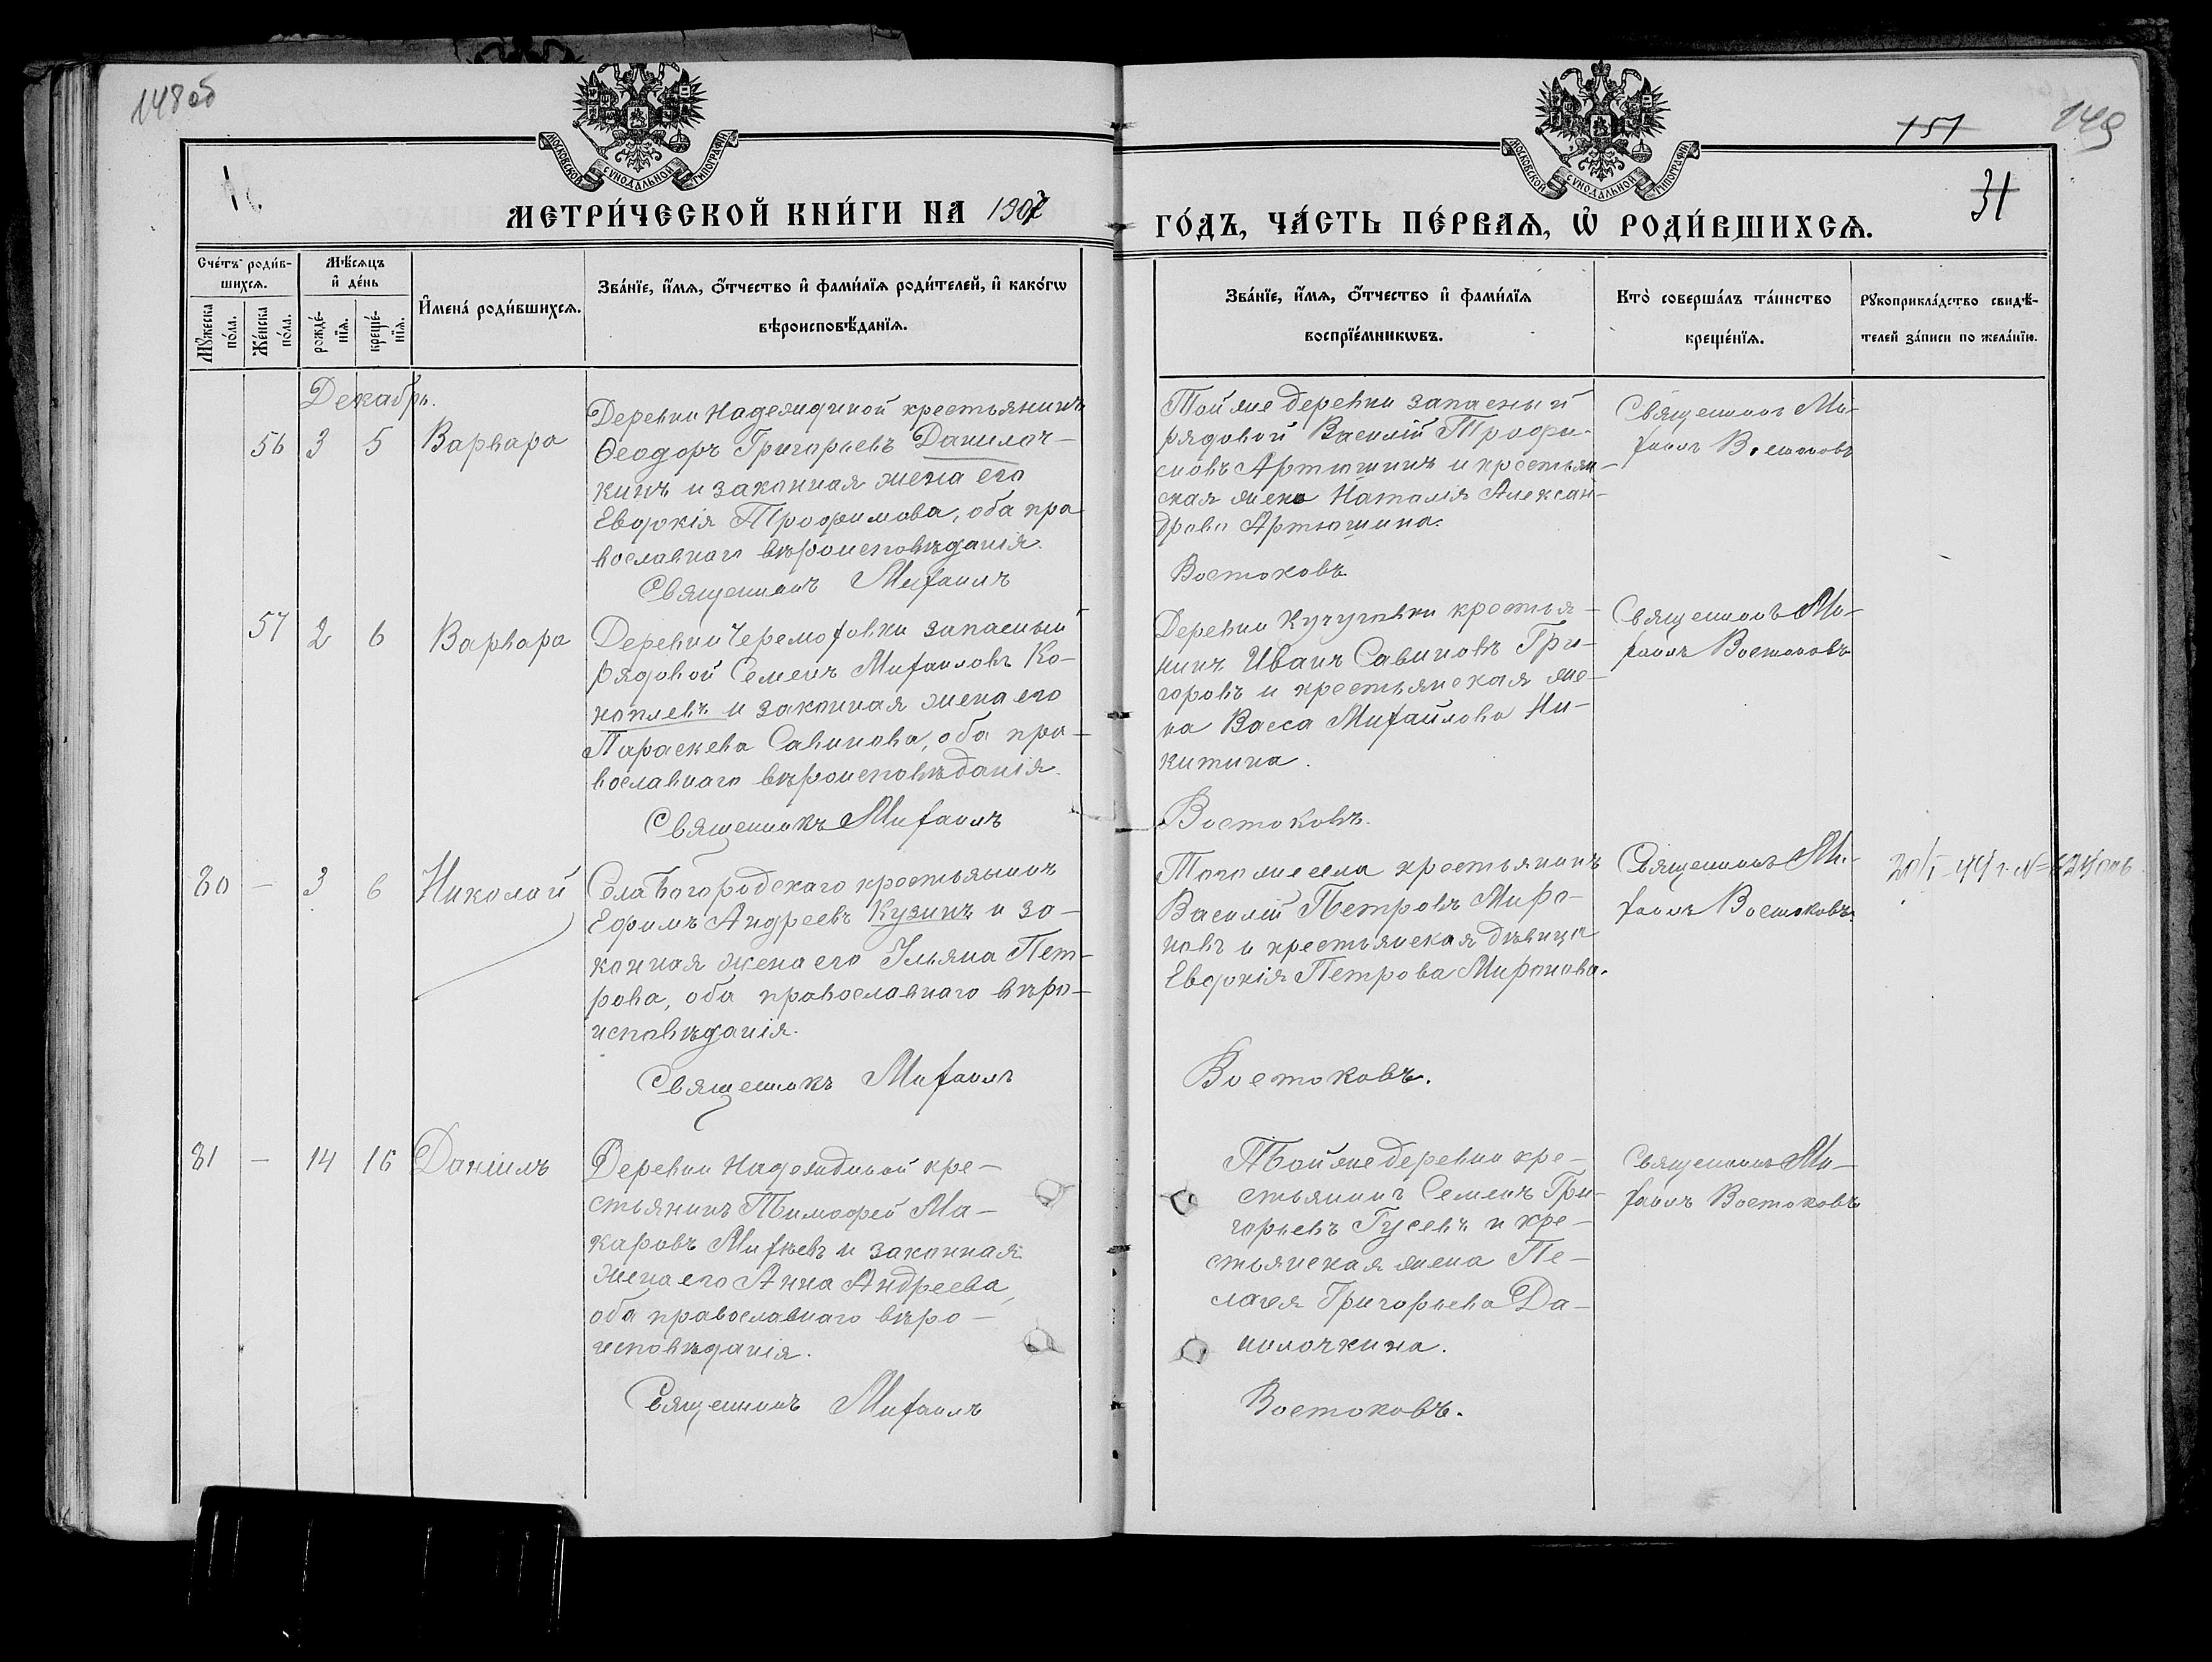 148 об
151
149
31
МОСКОВСКОЙ СѴНОДАЛЬНОЙ ТИПОГРАФІИ
МОСКОВСКОЙ СѴНОДАЛЬНОЙ ТИПОГРАФІИ
МЕТРИ́ЧЕСКОЙ КНИ́ГИ НА 1907
ГО́ДЪ, ЧА́СТЬ ПЕ́РВАѦ, Ѡ҆ РОДИ́ВШИХСѦ.
Сче́тъ роди́в-
шихсѧ.
Мѣ́сѧцъ
и҆ де́нь
Мꙋ́жеска
по́ла.
Же́нска
по́ла.
рожде́-
нїѧ.
креще́-
нїѧ.
И҆мена̀ роди́вшихсѧ.
Зва́нїе, и҆́мѧ, ѻ҆́тчество и҆ фами́лїѧ роди́телей, и҆ како́гѡ
вѣроисповѣ́данїѧ.
Зва́нїе, и҆́мѧ, ѻ҆́тчество и҆ фами́лїѧ
воспрїе́мникѡвъ.
Кто̀ соверша́лъ та́инство
креще́нїѧ.
Рꙋкоприкла́дство свидѣ́-
телей за́писи по жела́нїю.
Декабрь.
56 3 5 Варвара
Деревни Надеждиной крестьянинъ
Ѳеодоръ Григорьевъ Данилоч-
кинъ и законная жена его
Евдокія Трофимова, оба пра
вославнаго вѣроисповѣданія.
Священникъ Михаилъ
Той же деревни запасный
рядовой Василій Трофи-
мовъ Артюшинъ и крестьян-
ская жена Наталія Алексан-
дрова Артюшина.
Востоковъ
Священникъ Ми-
хаилъ Востоковъ
57 2 6 Варвара
Деревни Черемоховки запасный
рядовой Семенъ Михаиловъ Ко-
ноплевъ и законная жена его
Параскева Савинова, оба пра-
вославнаго вѣроисповѣданія.
Священникъ Михаилъ
Деревни Кучугывки крестья-
нинъ Иванъ Савиновъ Гри-
горовъ и крестьянская же-
на Васса Михайлова Ни-
китина.
Востоковъ.
Священникъ Ми-
хаилъ Востоковъ
80 - 3 6 Николай
Села Богородскаго крестьянинъ
Ефимъ Андреевъ Кузинъ и за-
конная жена его Ульяна Пет-
рова, оба православнаго вѣро-
исповѣданія.
Священникъ Михаилъ
Того же села крестьянинъ
Василій Петровъ Миро-
новъ и крестьянская дѣвица
Евдокія Петрова Миронова.
Востоковъ.
Священникъ Ми-
хаилъ Востоковъ.
81 - 14 16 Даніилъ
Деревни Надеждиной кре-
стьянинъ Тимофей Ма-
каровъ Михѣевъ и законная
жена его Анна Андреева,
оба православнаго вѣро-
исповѣданія.
Священникъ Михаилъ
Той же деревни кре-
стьянинъ Семенъ Гри-
горьевъ Гусевъ и кре-
стьянская жена Пе-
лагея Григорьева Да-
нилочкина.
Востоковъ.
Священникъ Ми-
хаилъ Востоковъ